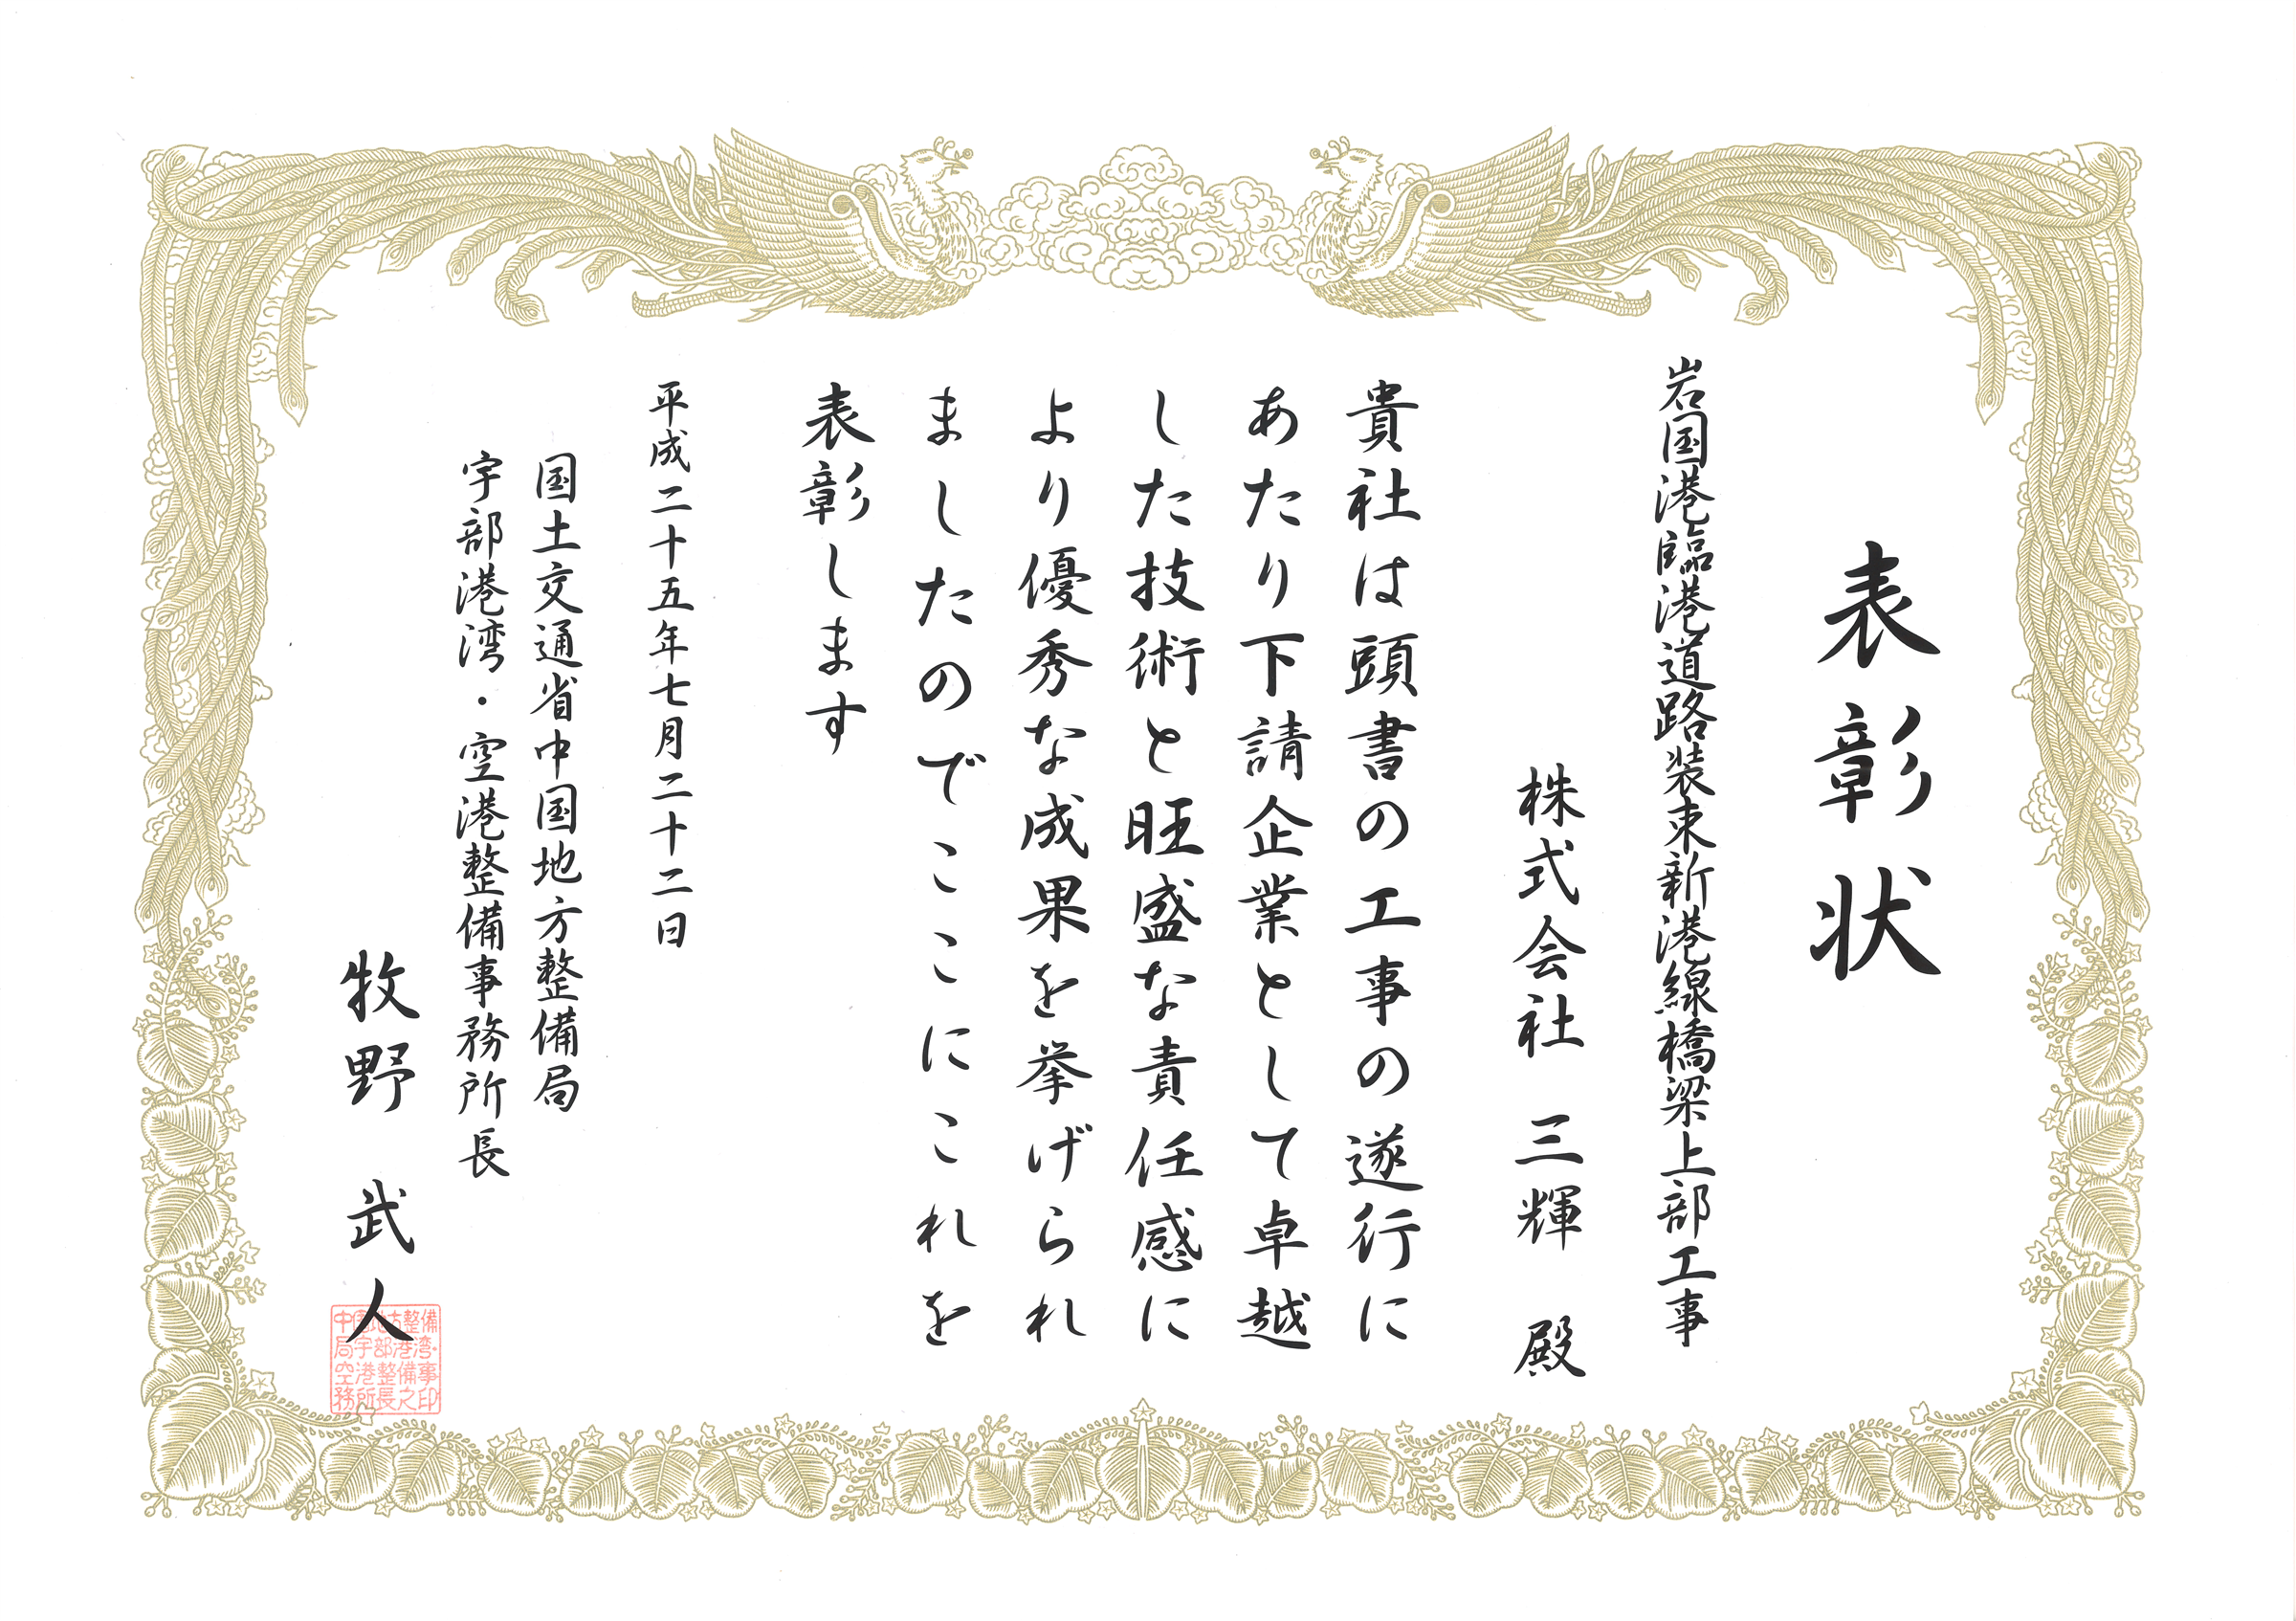 表彰状
岩国港臨港道路装束新港線橋梁上部工事
株式会社 三輝 殿
貴社は頭書の工事の遂行に
あたり下請企業として卓越
した技術と旺盛な責任感に
より優秀な成果を挙げられ
ましたのでここにこれを
表彰します
平成二十五年七月二十二日
国土交通省中国地方整備局
宇部港湾・空港整備事務所長
牧野 武人
中国地方整備
局宇部港湾・
空港整備事
務所長之印